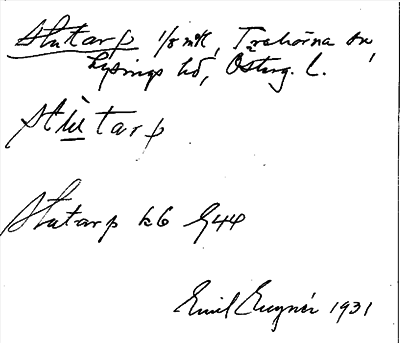 Slutarp 1/8 mtl, Trehörna sn,
Lysings hd, Österg. l.
Slutarp
Slutarp k6 G44
Emil Eugnér 1931